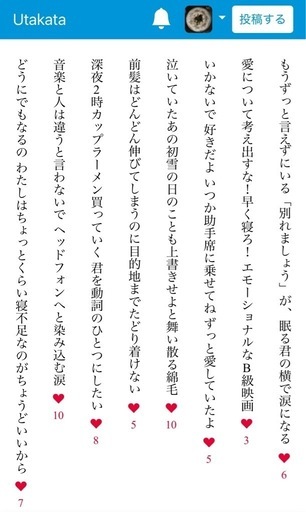 Utakata
投稿する
もうずっと言えずにいる「別れましょう」が、眠る君の横で涙になる ♥ 6
愛について考え出すな!早く寝ろ!エモーショナルなB級映画 ♥ 3
いかないで 好きだよ いつか助手席に乗せてね ずっと愛していたよ ♥ 5
泣いていたあの初雪の日のことも上書きせよと舞い散る綿毛 ♥ 10
前髪はどんどん伸びてしまうのに目的地までたどり着けない ♥ 5
深夜2時カップラーメン買っていく君を動詞のひとつにしたい ♥ 8
音楽と人は違うと言わないで ヘッドフォンへと染み込む涙 ♥ 10
どうにでもなるの わたしはちょっとくらい寝不足なのがちょうどいいから ♥ 7